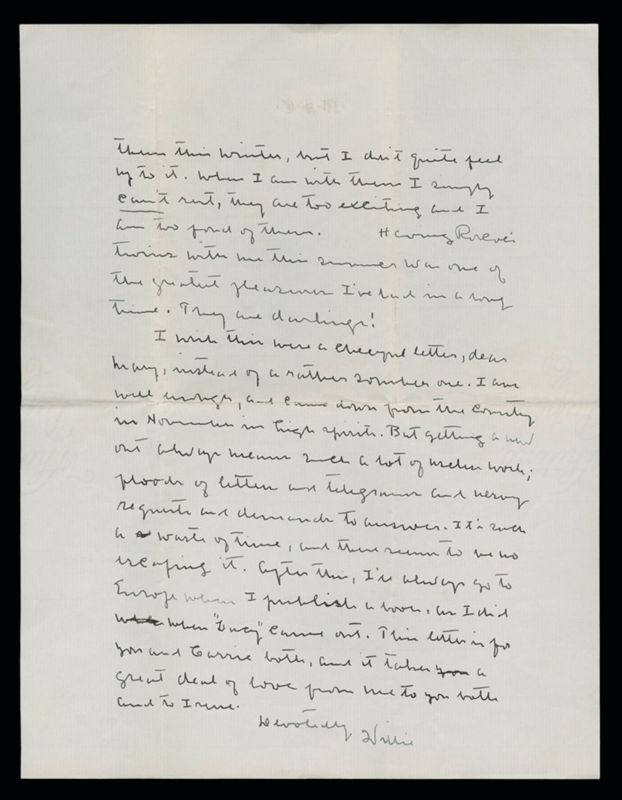 them this winter, but I don't quite feel
up to it. When I am with them I simply
can't rest, they are too exciting and I
am too fond of them. Having Roscoe's
twins with me this summer was one of
the greatest pleasures I've had in a long
time. They are darlings!
I wish this were a cheerful letter, dear
Mary, instead of a rather somber one. I am
well enough, and came down from the country
in November in high spirits. But getting a book
out always means such a lot of useless work;
floods of letters and telegrams and nervy
requests and demands to answer. It's such
a waste of time, and there seems to be no
escaping it. After this, I'll always go to
Europe when I publish a book, as I did
when "Lucy" came out. This letter is for
you and Carrie both, and it takes you a
great deal of love from me to you both
and to Irene.
Devotedly
Willie